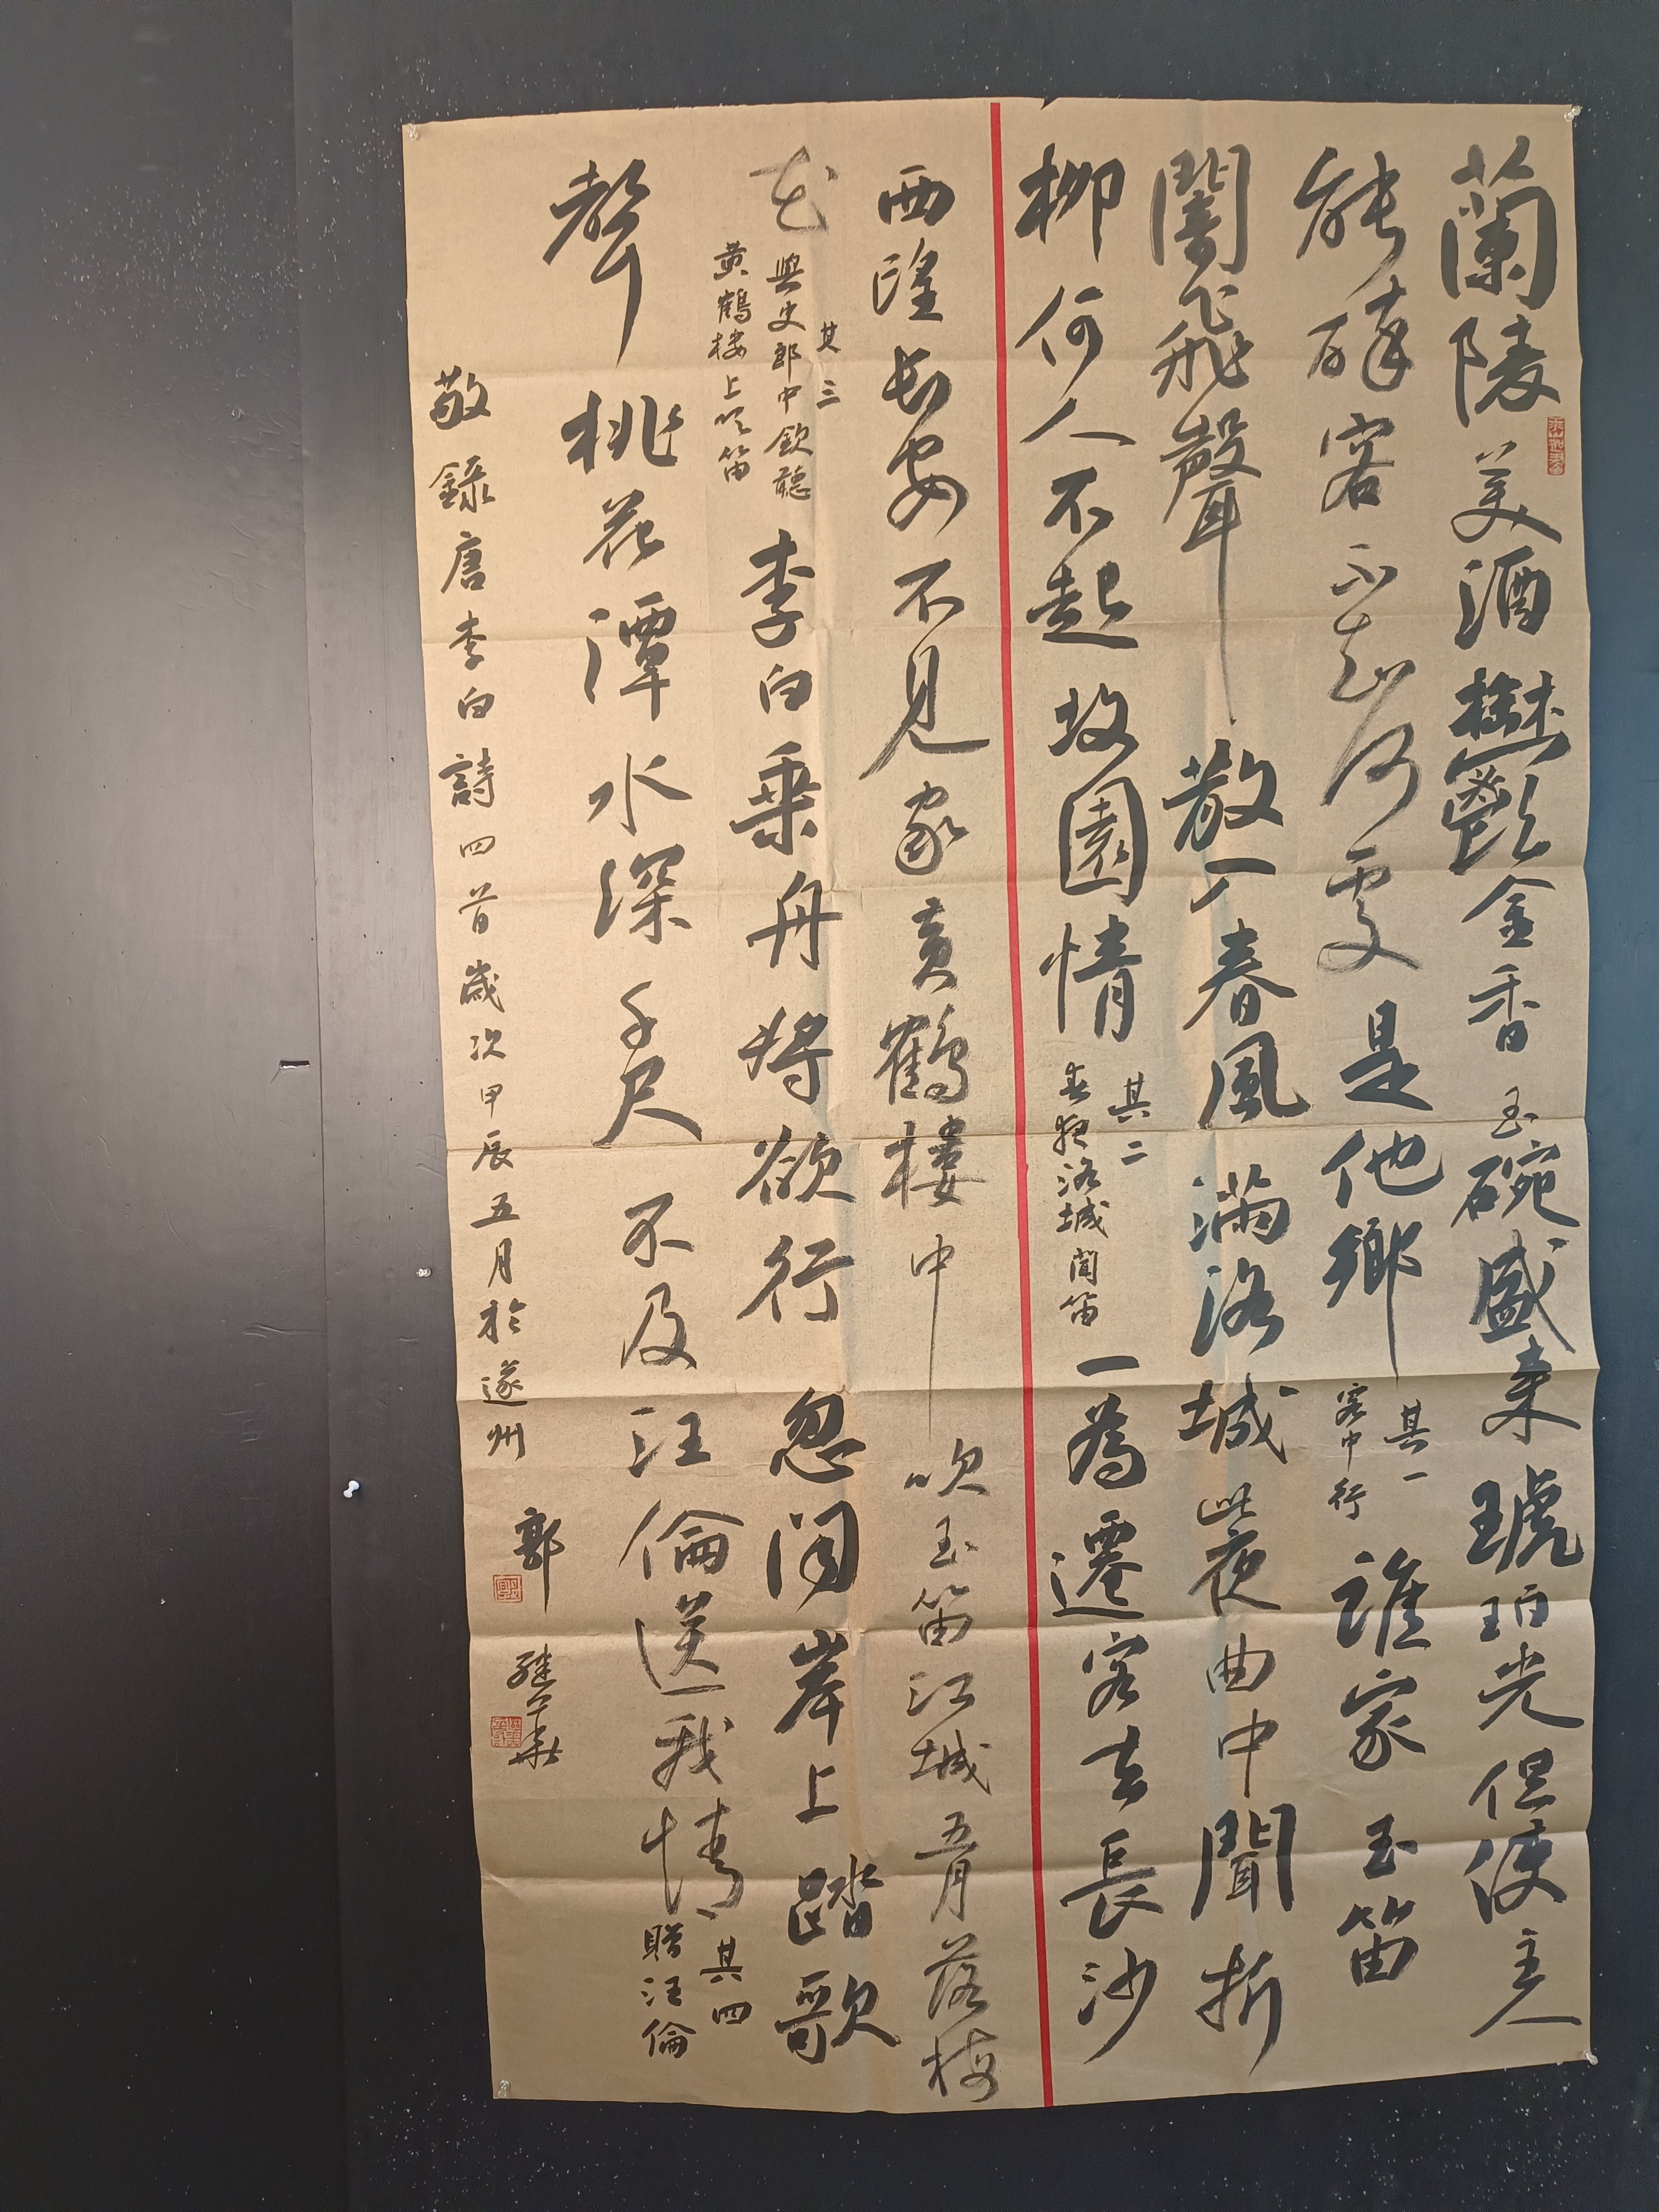 蘭陵美酒欝金香玉碗盛来琥珀光但使主人
能醉客不知何處是他鄉
其一
客中行
誰家玉笛
闇飛聲散入春風滿洛城此夜曲中聞折
柳何人不起故園情
其二
春夜洛城聞笛
一為遷客去長沙
西望长安不見家黄鶴樓中吹玉笛江城五月落梅
花
其三
與史郎中欽聽
黄鶴樓上吹笛
李白乗舟将欲行忽闻岸上踏歌
聲桃花潭水深千尺不及汪倫送我情
其四
贈汪倫
敬錄唐李白詩四首歲次甲辰五月於遂州
郭